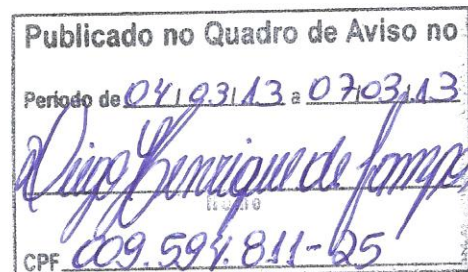 Publicado no Quadro de Aviso no
Periodo de 04/03/13 a 07/03/13
Diego Henrique de
CPF 009.594.811-25